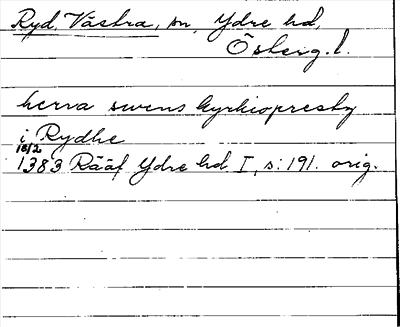 Ryd, Västra, sn, Ydre hd,
Östeig.l.
herra swens kyrkiopresby
i Rydhe
18/2
1383 Rääf Ydre hd I, s: 191. orig.